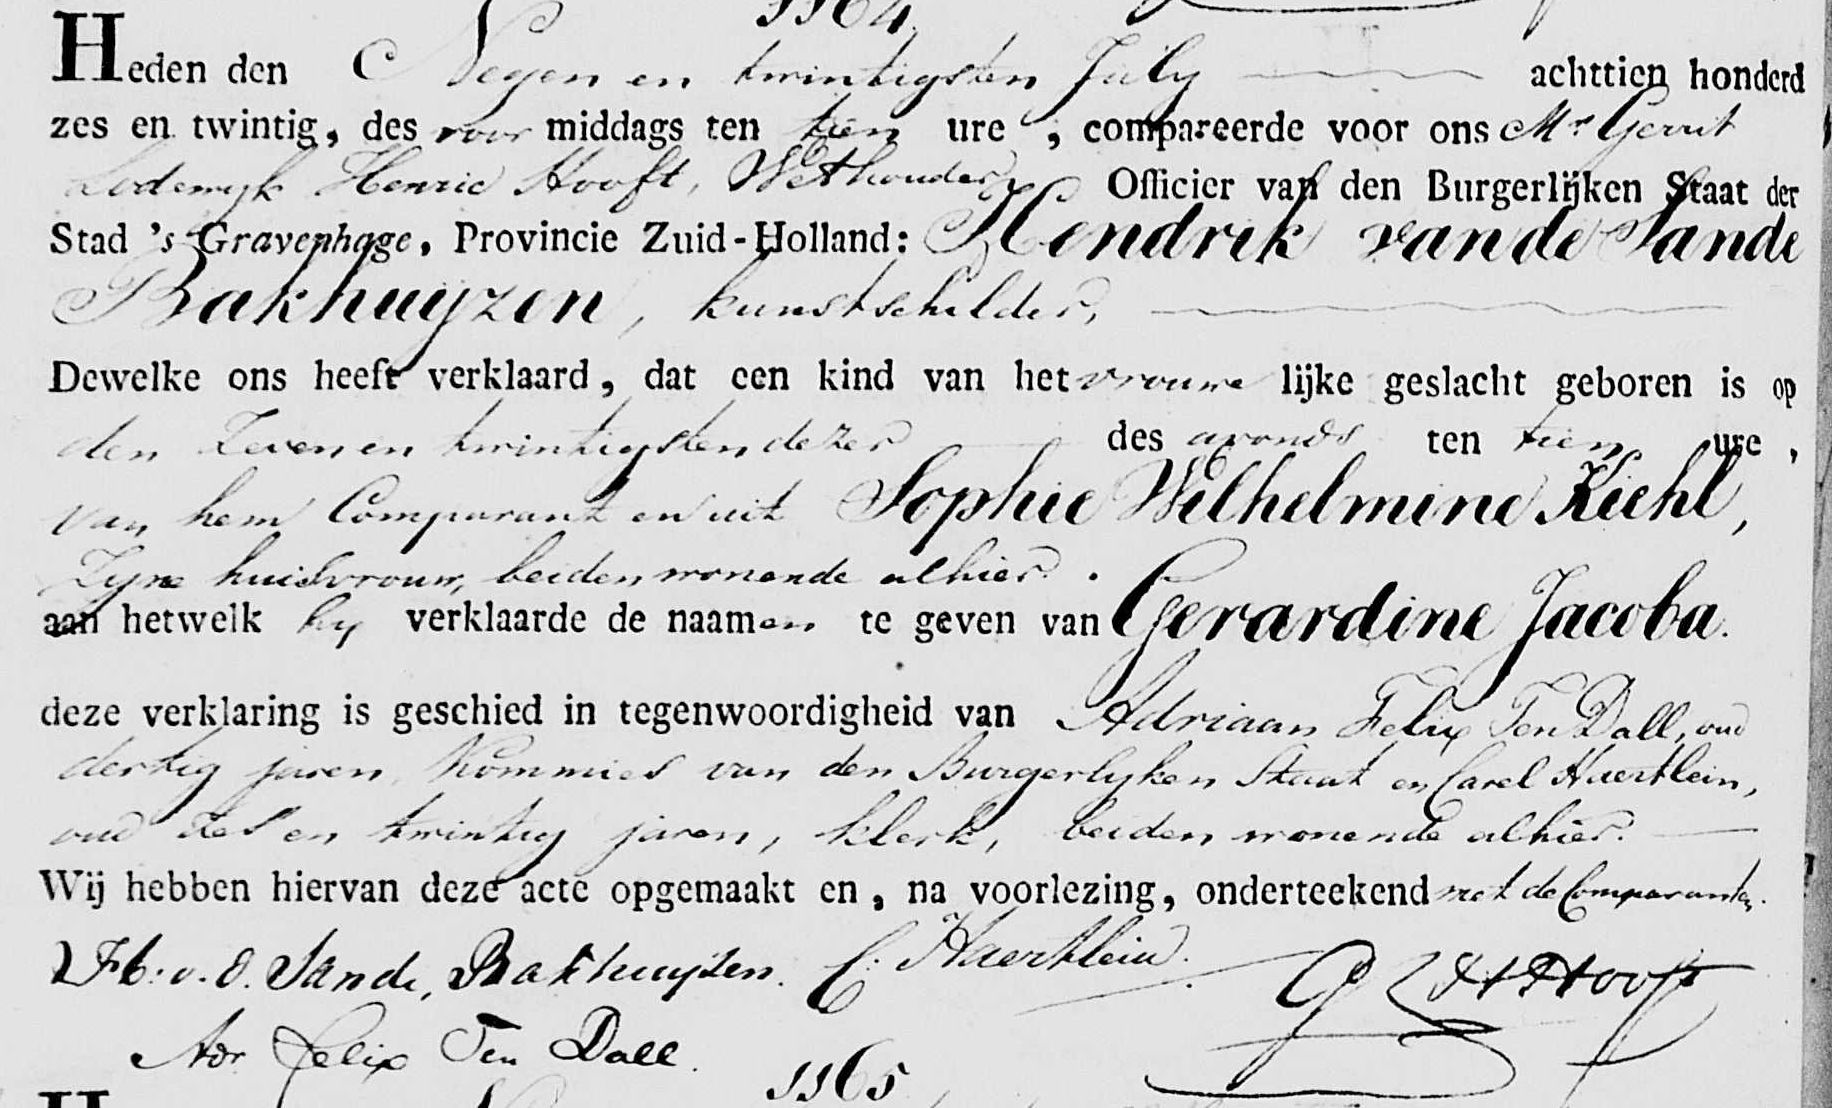 1164.
Heden den Negen en twintigsten July achttien honderd
zes en twintig, des voor middags ten tien ure , compareerde voor ons Mr Gerrit
Lodewyk Henric Hooft, Wethouder, Officier van den Burgerlijken Staat der
Stad 's Gravenhage, Provincie Zuid-Holland: Hendrik van de Sande
Bakhuyzen, kunstschilder,
Dewelke ons heeft verklaard, dat een kind van het vrouwe lijke geslacht geboren is op
den Zeven en twintigsten dezer des avonds ten tien ure ,
van hem Comparant en uit Sophie Wilhelmine Kiehl,
Zyne huisvrouw, beiden wonende alhier.
aan hetwelk hy verklaarde de naamen te geven van Gerardine Jacoba.
deze verklaring is geschied in tegenwoordigheid van Adriaan Felix Ten Dall, oud
dertig jaren, Kommies van den Burgerlyken Staat en Carel Haertlein,
oud zes en twintig jaren, klerk, beiden wonende alhier.
Wij hebben hiervan deze acte opgemaakt en, na voorlezing, onderteekend met de Comparanten.
H. v. d. Sande, Bakhuyzen. C. Haertlein. G L H Hooft
Adr Felix Ten Dall.
1165
H